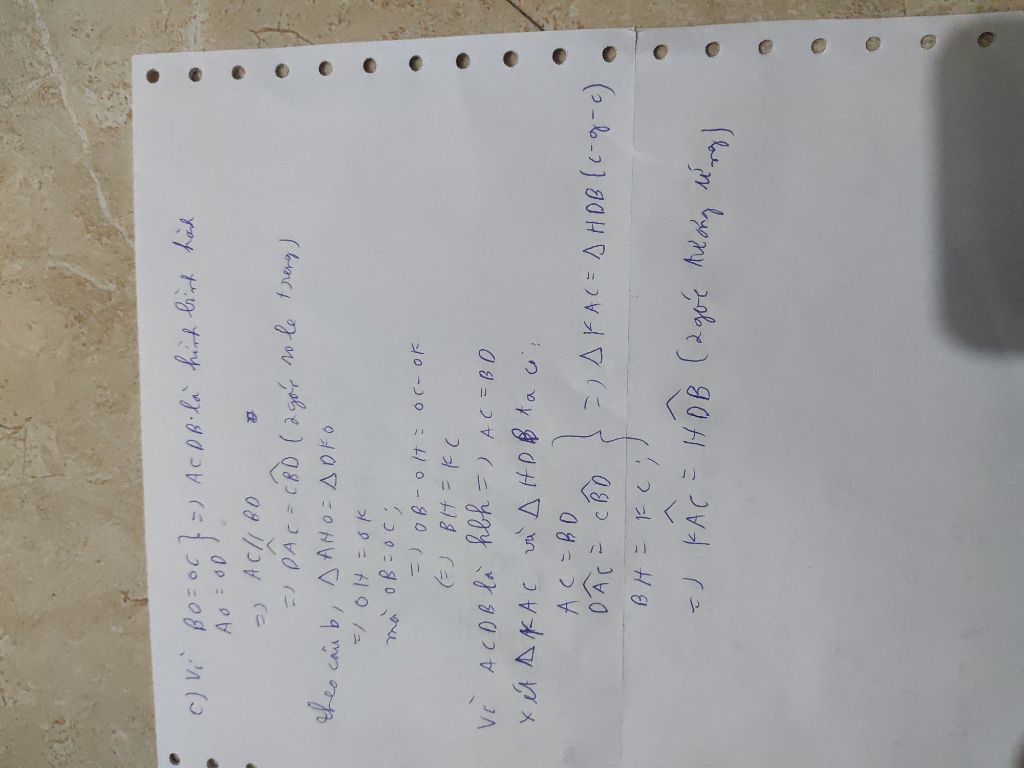 c) Vì BO = OC } => ACDB là hình bình hành
AO = OD
=> AC // BD
=> DAC = CBD (2 góc so le trong)
theo câu b, Δ AHO = Δ DKO
=> OH = OK
mà OB = OC;
=> OB - OH = OC - OK
(=) BH = KC
Vì ACDB là hbh => AC = BD
xét Δ KAC và Δ HDB ta có:
AC = BD
DAC = CBD } => Δ KAC = Δ HDB (c-g-c)
BH = KC;
=> KAC = HDB (2 góc tương ứng)